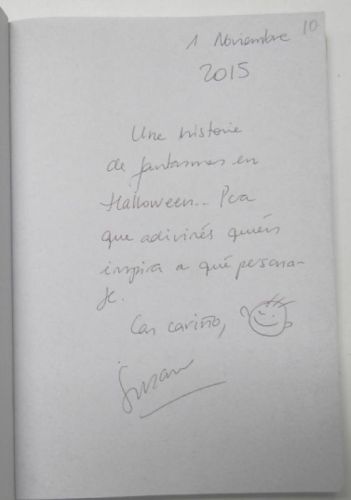 10
1 Noviembre
2015
Una historia
de fantasmas en
Halloween... Para
que adivinéis quién
inspira a qué persona-
je.
Con cariño,
Susana